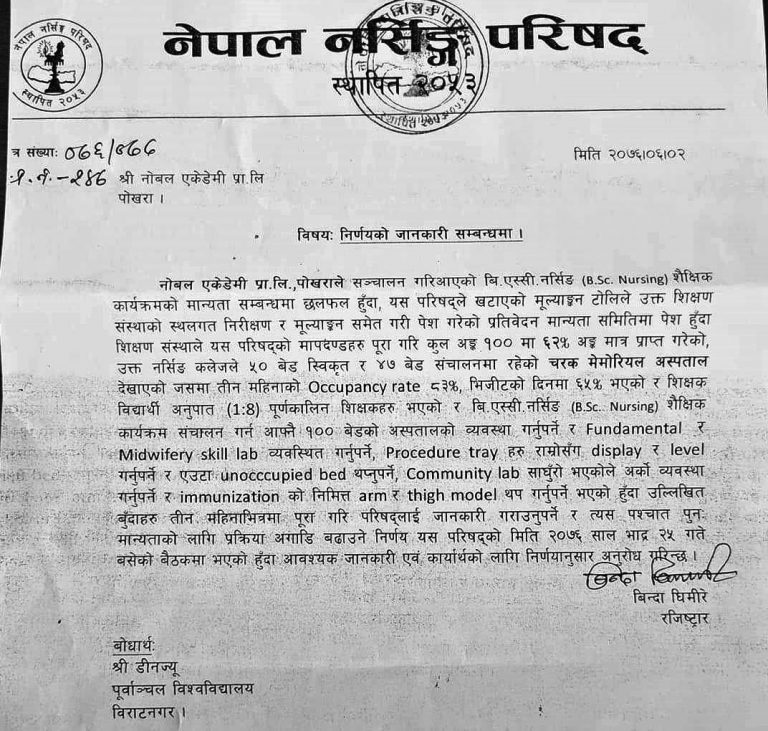 नेपाल नर्सिङ्ग परिषद्
स्थापित २०५३
नेपाल नर्सिङ्ग परिषद
स्थापित २०५३
स्थापित २०५३
त्र संख्या: ०७६/७७
मिति २०७६।०६।०२
श्री नोबल एकेडेमी प्रा.लि
पोखरा ।
विषय: निर्णयको जानकारी सम्बन्धमा ।
नोबल एकेडेमी प्रा.लि.,पोखराले सञ्चालन गरिआएको बि.एस्सी.नर्सिङ (B.Sc. Nursing) शैक्षिक
कार्यक्रमको मान्यता सम्बन्धमा छलफल हुँदा, यस परिषद्ले खटाएको मूल्याङ्कन टोलिले उक्त शिक्षण
संस्थाको स्थलगत निरीक्षण र मूल्याङ्कन समेत गरी पेश गरेको प्रतिवेदन मान्यता समितिमा पेश हुँदा
शिक्षण संस्थाले यस परिषद्को मापदण्डहरु पूरा गरि कुल अङ्क १०० मा ६२% अङ्क मात्र प्राप्त गरेको,
उक्त नर्सिङ कलेजले ५० बेड स्विकृत र ४७ बेड संचालनमा रहेको चरक मेमोरियल अस्पताल
देखाएको जसमा तीन महिनाको Occupancy rate ८३%, भिजीटको दिनमा ६५% भएको र शिक्षक
विद्यार्थी अनुपात (1:8) पूर्णकालिन शिक्षकहरु भएको र बि.एस्सी.नर्सिङ (B.Sc. Nursing) शैक्षिक
कार्यक्रम संचालन गर्न आफ्नै १०० बेडको अस्पतालको व्यवस्था गर्नुपर्ने र Fundamental र
Midwifery skill lab व्यवस्थित गर्नुपर्ने, Procedure tray हरु राम्रोसँग display र level
गर्नुपर्ने र एउटा unocccupied bed थप्नुपर्ने, Community lab साघुँरो भएकोले अर्को व्यवस्था
गर्नुपर्ने र immunization को निमित्त arm र thigh model थप गर्नुपर्ने भएको हुँदा उल्लिखित
बुँदाहरु तीन महिनाभित्रमा पूरा गरि परिषद्लाई जानकारी गराउनुपर्ने र त्यस पश्चात पुनः
मान्यताको लागि प्रक्रिया अगाडि बढाउने निर्णय यस परिषद्को मिति २०७६ साल भाद्र २५ गते
बसेको बैठकमा भएको हुँदा आवश्यक जानकारी एवं कार्यार्थको लागि निर्णयानुसार अनुरोध गरिन्छ ।
बिन्दा घिमीरे
रजिष्ट्रार
बोधार्थ:
श्री डीनज्यू
पूर्वाञ्चल विश्वविद्यालय
विराटनगर ।